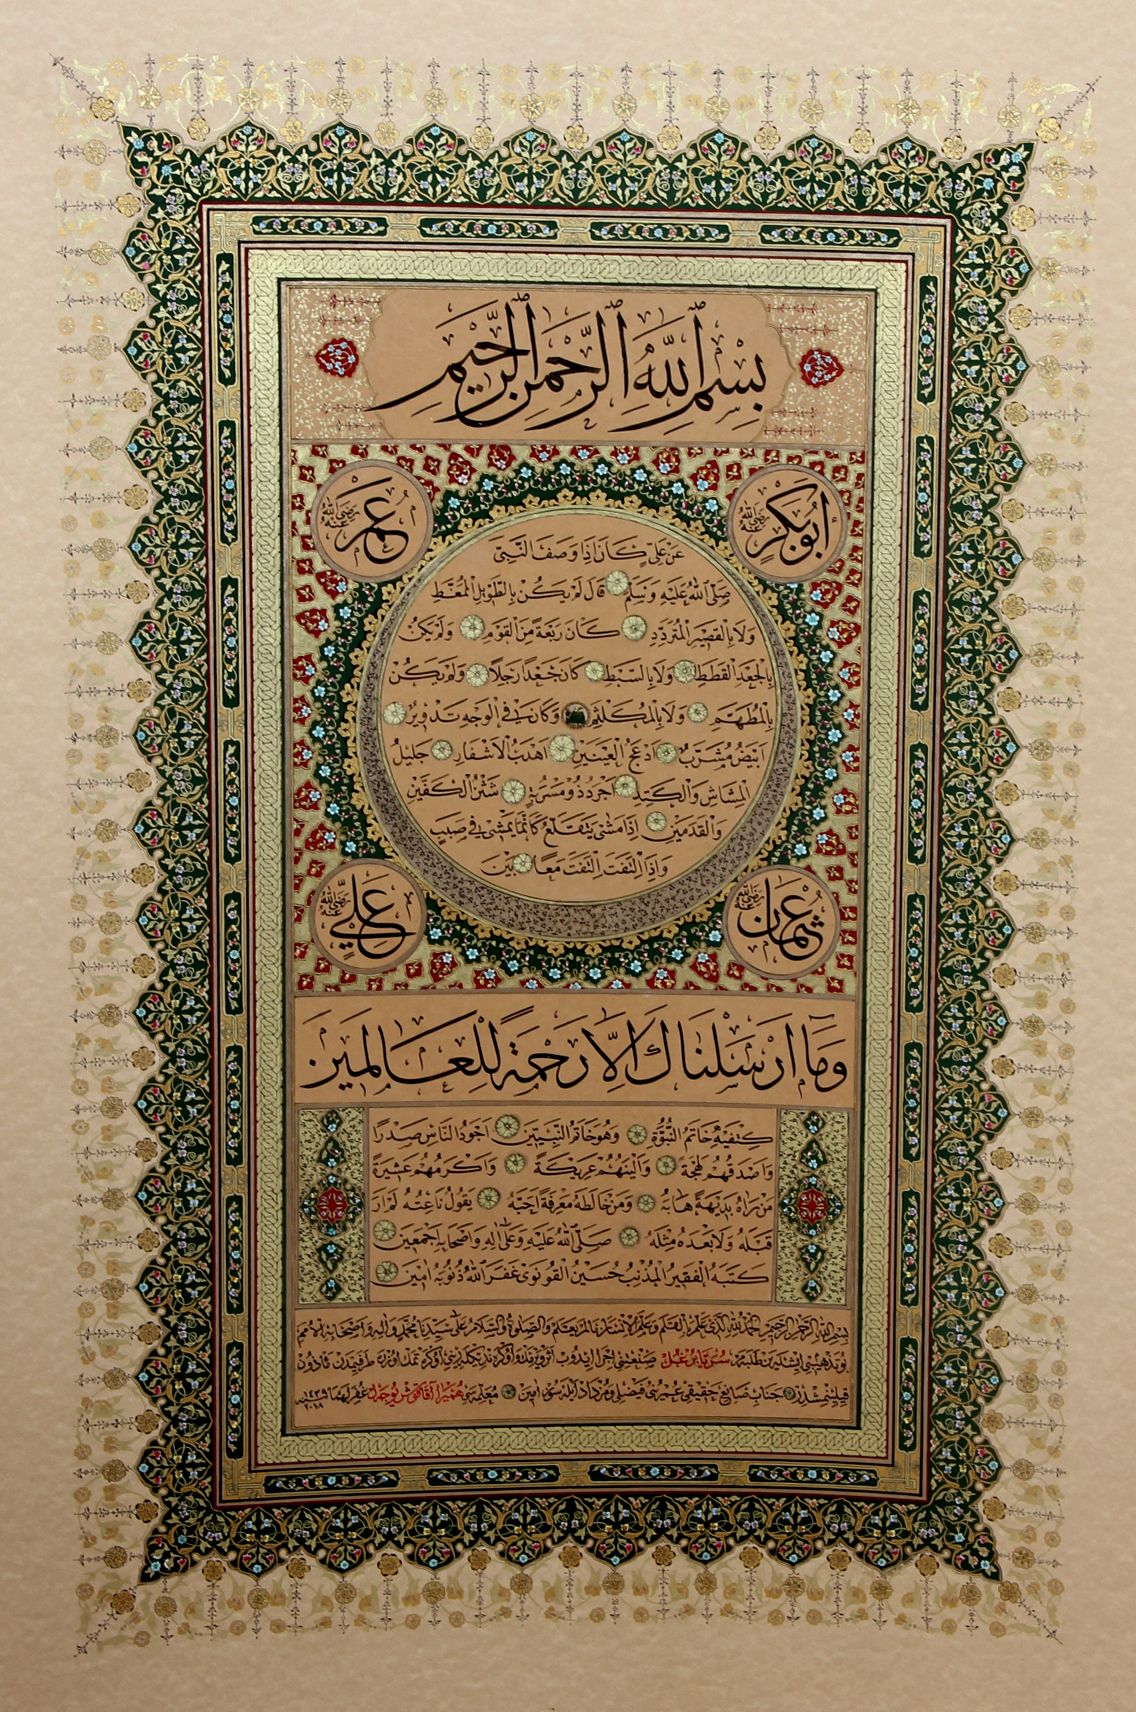 بِسْمِ ٱللّٰهِ ٱلرَّحْمٰنِ ٱلرَّحِيْمِ
أَبُوبَكْرٍ رَضِيَ اللّٰهُ عَنْهُ
عُمَرْ رَضِيَ اللّٰهُ عَنْهُ
عَنْ عَلِيٍّ كَانَ اِذَا وَصَفَ النَّبِيَّ
صَلَّى اللّٰهُ عَلَيْهِ وَسَلَّمَ قَالَ لَمْ يَكُنْ بِالطَّوِيْلِ الْمُمَّغَّطِ
وَلَا بِالْقَصِيْرِ الْمُتَرَدِّدِ كَانَ رَبْعَةً مِنَ الْقَوْمِ وَلَمْ يَكُنْ
بِالْجَعْدِ الْقَطَطِ وَلَا بِالسَّبْطِ كَانَ جَعْدًا رَجِلًا وَلَمْ يَكُنْ
بِالْمُطَهَّمِ وَلَا بِالْمُكَلْثَمِ وَكَانَ فِي الْوَجْهِ تَدْوِيْرٌ
اَبْيَضُ مُشْرَبٌ اَدْعَجُ الْعَيْنَيْنِ اَهْدَبُ الْاَشْفَارِ جَلِيْلُ
الْمُشَاشِ وَالْكَتَدِ اَجْرَدُ ذُوْ مَسْرُبَةٍ شَثْنُ الْكَفَّيْنِ
وَالْقَدَمَيْنِ اِذَا مَشٰى يَتَقَلَّعُ كَاَنَّمَا يَمْشِيْ فِيْ صَبَبٍ
وَاِذَا الْتَفَتَ اِلْتَفَتَ مَعًا بَيْنَ
عُثْمَانُ رَضِيَ اللّٰهُ عَنْهُ
عَلِيٍّ رَضِيَ اللّٰهُ عَنْهُ
وَمَآ اَرْسَلْنَاكَ اِلَّا رَحْمَةً لِلْعَالَمِيْنَ
كَتِفَيْهِ خَاتَمُ النُّبُوَّةِ وَهُوَ خَاتَمُ النَّبِيِّيْنَ اَجْوَدُ النَّاسِ صَدْرًا
وَاَصْدَقُهُمْ لَهْجَةً وَاَلْيَنُهُمْ عَرِيْكَةً وَاَكْرَمُهُمْ عَشِيْرَةً
مَنْ رَاٰهُ بَدِيْهَةً هَابَهُ وَمَنْ خَالَطَهُ مَعْرِفَةً اَحَبَّهُ يَقُوْلُ نَاعِتُهُ لَمْ اَرَ
قَبْلَهُ وَلَا بَعْدَهُ مِثْلَهُ صَلَّى اللّٰهُ عَلَيْهِ وَعَلٰى اٰلِهِ وَاَصْحَابِهِ اَجْمَعِيْنَ
كَتَبَهُ الْفَقِيْرُ الْمُذْنِبُ حُسَيْنُ الْقُوْنَوِيْ غَفَرَ اللّٰهُ ذُنُوْبَهُ اٰمِيْنَ
بِسْمِ اللّٰهِ الرَّحْمٰنِ الرَّحِيْمِ اَلْحَمْدُ لِلّٰهِ الَّذِيْ عَلَّمَ بِالْقَلَمِ وَعَلَّمَ الْاِنْسَانَ مَا لَمْ يَعْلَمْ وَالصَّلٰوةُ وَالسَّلَامُ عَلٰى سَيِّدِنَا مُحَمَّدٍ وَاٰلِهِ وَاَصْحَابِهِ
١٤٣٩
٢٠١٨